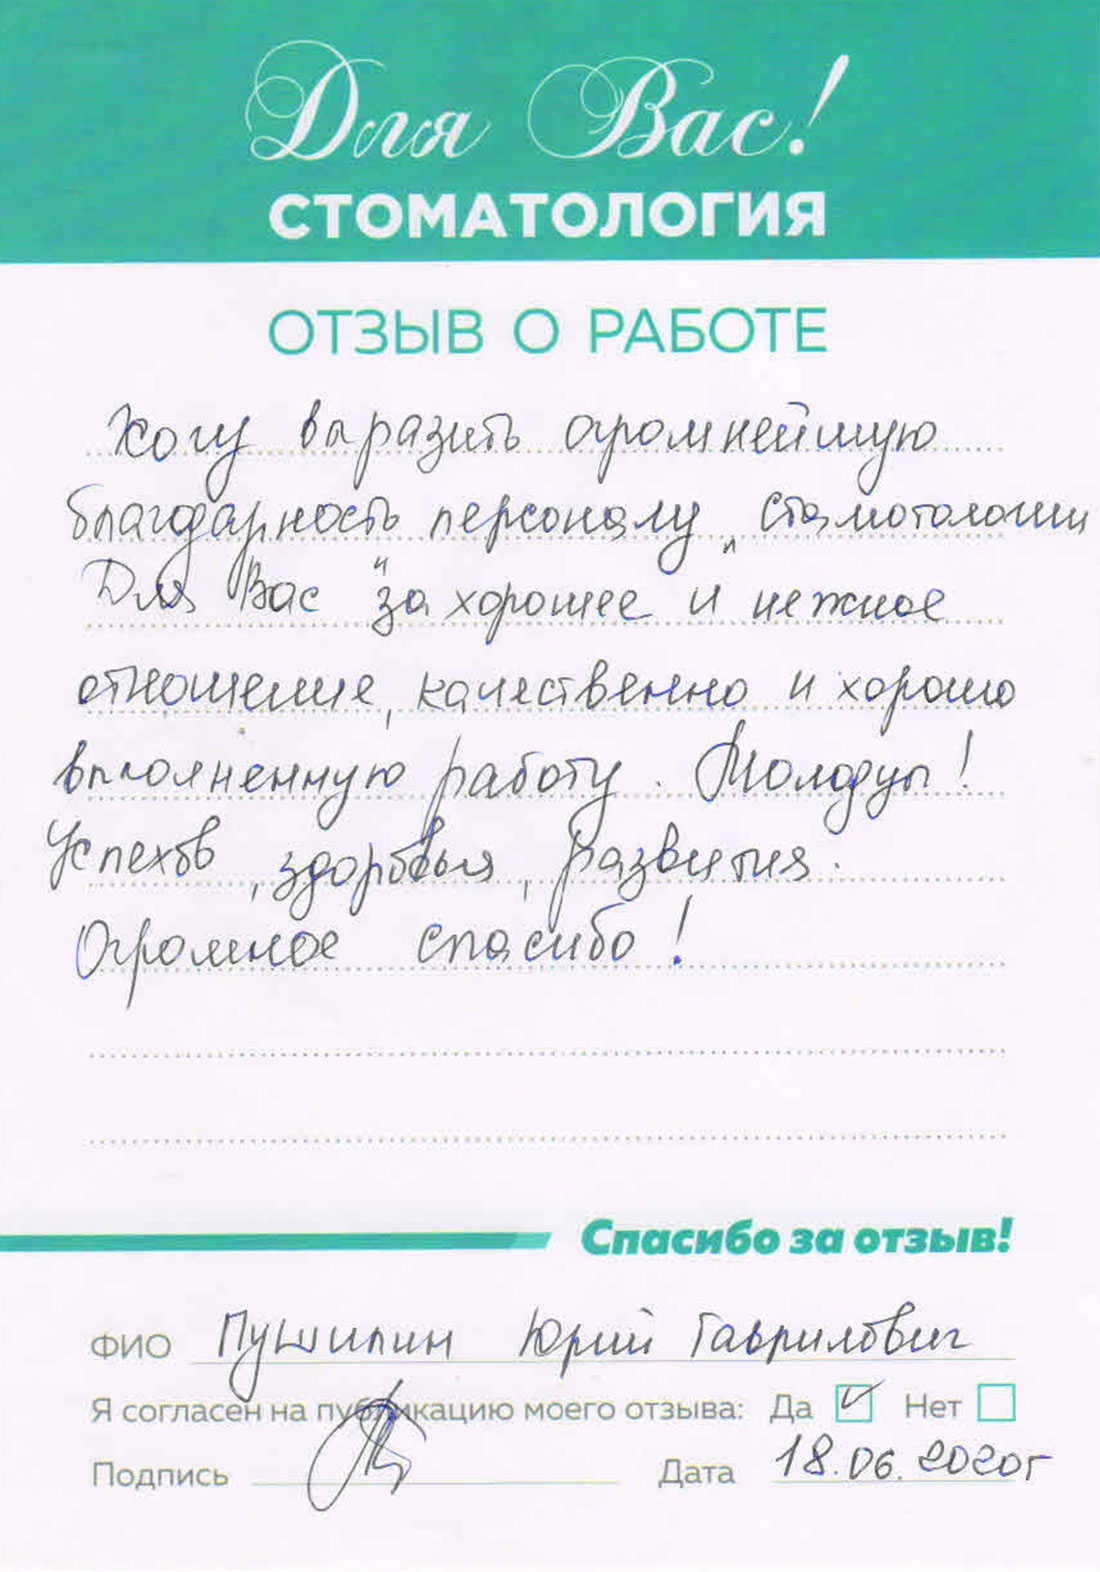 Для Вас!
СТОМАТОЛОГИЯ
ОТЗЫВ О РАБОТЕ
Хочу выразить огромнейшую
благодарность персоналу „стамотологии
Для Вас" за хорошее и нежное
отношение, качественно и хорошо
выполненную работу. Молодцы!
Успехов, здоровья, развития.
Огромное спасибо!
Спасибо за отзыв!
ФИО Пушилин Юрий Гаврилович
Я согласен на публикацию моего отзыва: Да ✓ Нет
Подпись Дата 18.06.2020г